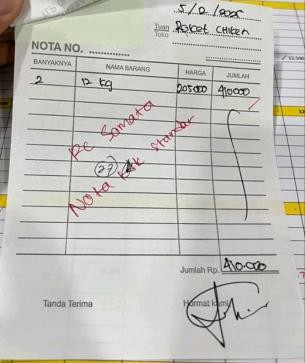 5/2/2025
Tuan
Toko
Roket CHIKEN
NOTA NO. ..............
BANYAKNYA NAMA BARANG HARGA JUMLAH
2 12 kg 205000 410000
Pc Samata
(27)
Nota tak standar
Jumlah Rp. 410.000
Tanda Terima Hormat kami,